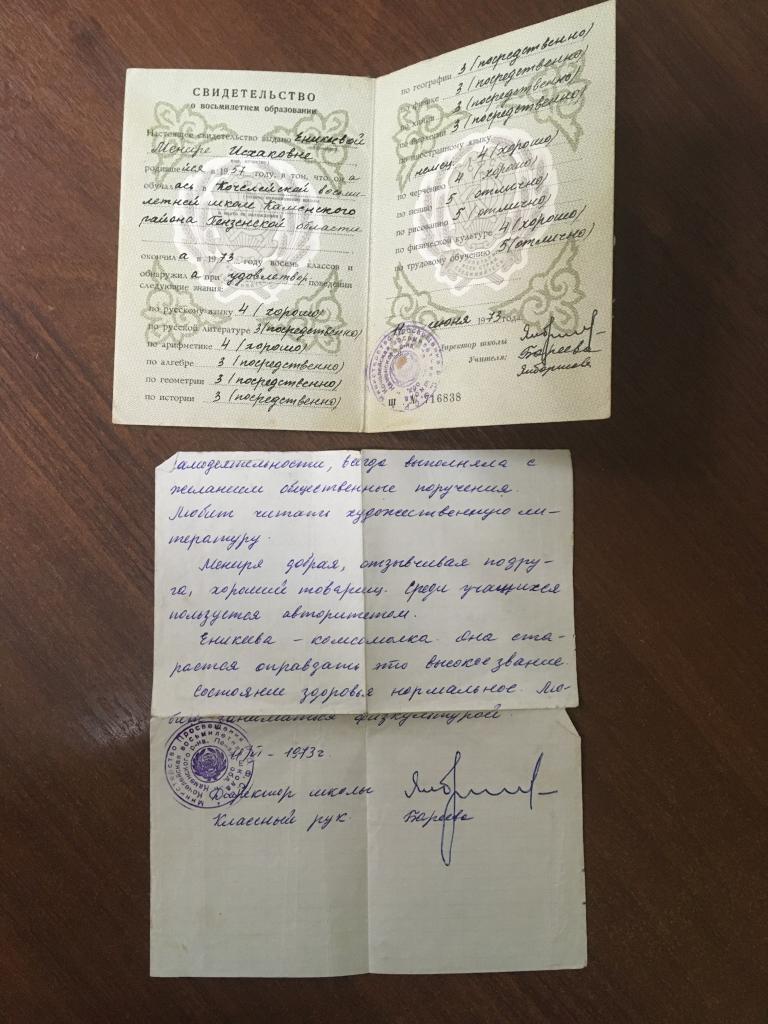 СВИДЕТЕЛЬСТВО
о восьмилетнем образовании
Настоящее свидетельство выдано Еникеевой
Менире Исхаковне
родившейся в 1957 году, в том, что он а
обучалась в Кочелейской восьми-
летней школе Каменского
района Пензенской области
окончил а в 1973 году восемь классов и
обнаружил а при удовлетвор. поведении
следующие знания:
по русскому языку 4 (хорошо)
по русской литературе 3 (посредственно)
по арифметике 4 (хорошо)
по алгебре 3 (посредственно)
по геометрии 3 (посредственно)
по истории 3 (посредственно)
по географии 3 (посредственно)
по физике 3 (посредственно)
по химии 3 (посредственно)
по биологии 3 (посредственно)
по иностранному языку
немец. 4 (хорошо)
по черчению 4 (хорошо)
по пению 5 (отлично)
по рисованию 5 (отлично)
по физической культуре 4 (хорошо)
по трудовому обучению 5 (отлично)
июня 1973 года
Директор школы
Учителя: Бареева
Ш № 716838
самодеятельности, всегда выполняла с
желанием общественные поручения.
Любит читать художественную ли-
тературу.
Мениря добрая, отзывчивая подру-
га, хороший товарищ. Среди учащихся
пользуется авторитетом.
Еникеева – комсомолка. Она ста-
рается оправдать это высокое звание.
Состояние здоровья нормальное. Лю-
бит заниматься физкультурой.
1973 г.
Директор школы
Классный рук. Бареева